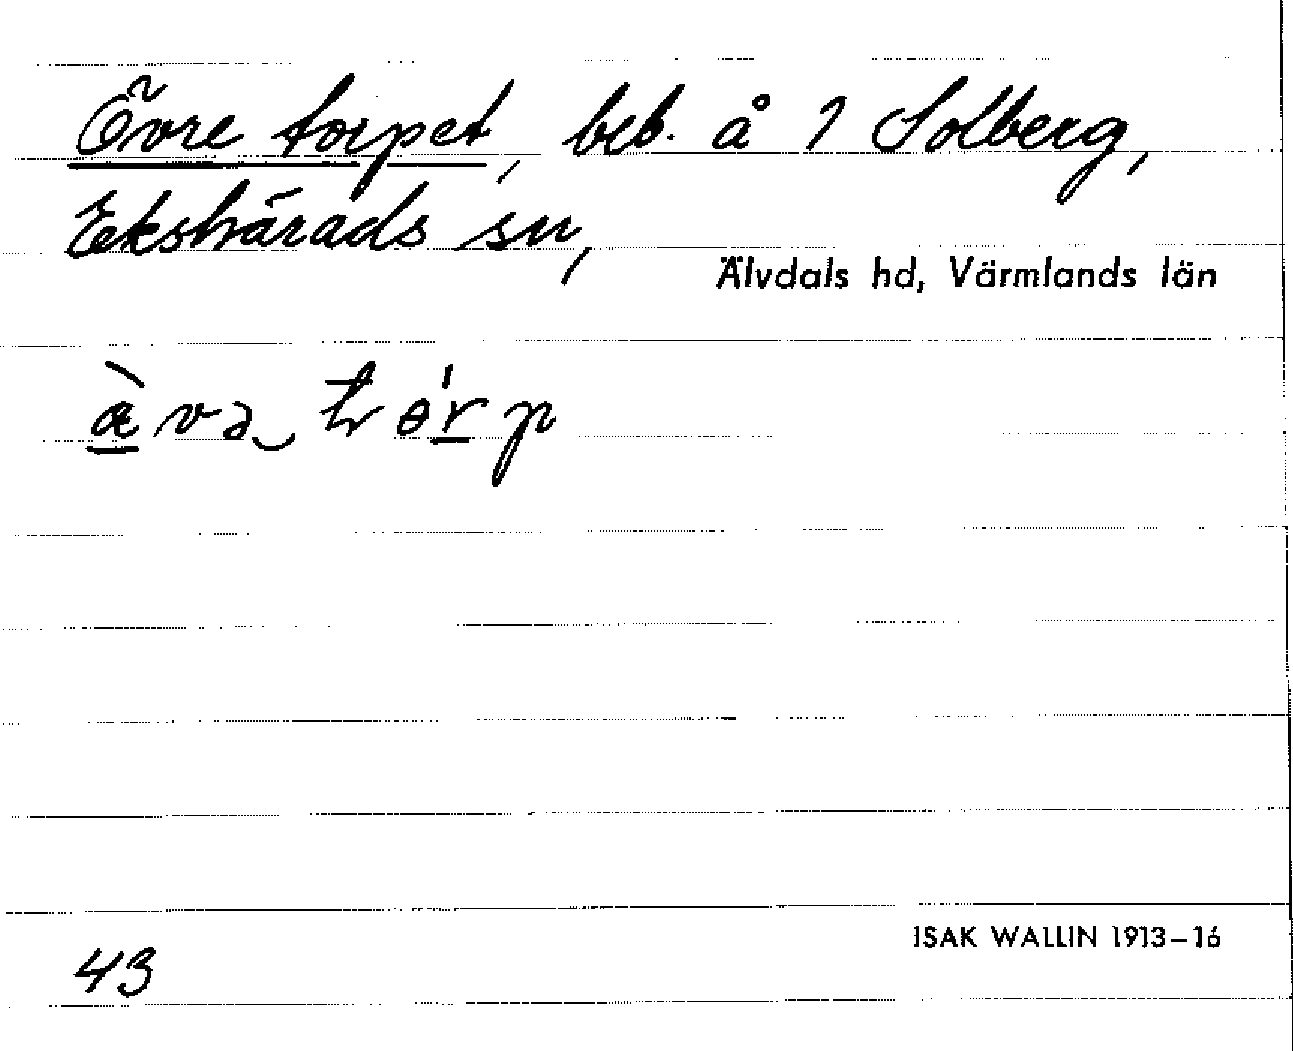 Övre torpet, beb. å 1 Solberg,
Ekshärads sn,
Älvdals hd, Värmlands län
ISAK WALLIN 1913–16
43